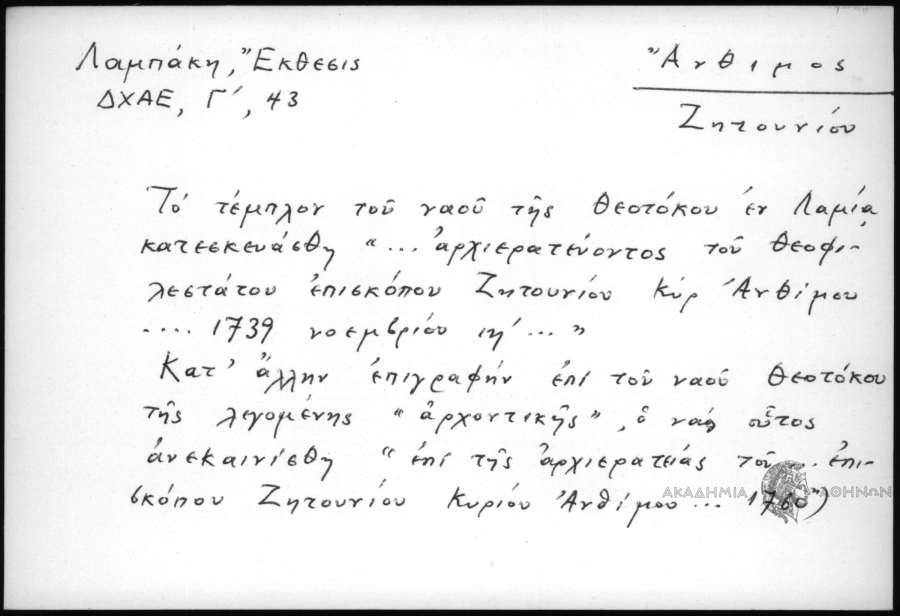 Λαμπάκη, Ἔκθεσις
ΔΧΑΕ, Γ΄, 43
Ἄνθιμος
Ζητουνίου
Τό τέμπλον τοῦ ναοῦ τῆς Θεοτόκου ἐν Λαμίᾳ
κατεσκευάσθη "... ἀρχιερατεύοντος τοῦ θεοφι-
λεστάτου ἐπισκόπου Ζητουνίου Κύρ Ἀνθίμου
.... 1739 νοεμβρίου ιη΄..."
Κατ' ἄλλην ἐπιγραφήν ἐπί τοῦ ναοῦ Θεοτόκου
τῆς λεγομένης "ἀρχοντικῆς", ὁ ναός οὗτος
ἀνεκαινίσθη "ἐπί τῆς ἀρχιερατείας τοῦ ... ἐπι-
σκόπου Ζητουνίου Κυρίου Ἀνθίμου ... 1760")
ΑΚΑΔΗΜΙΑ ΑΘΗΝΩΝ